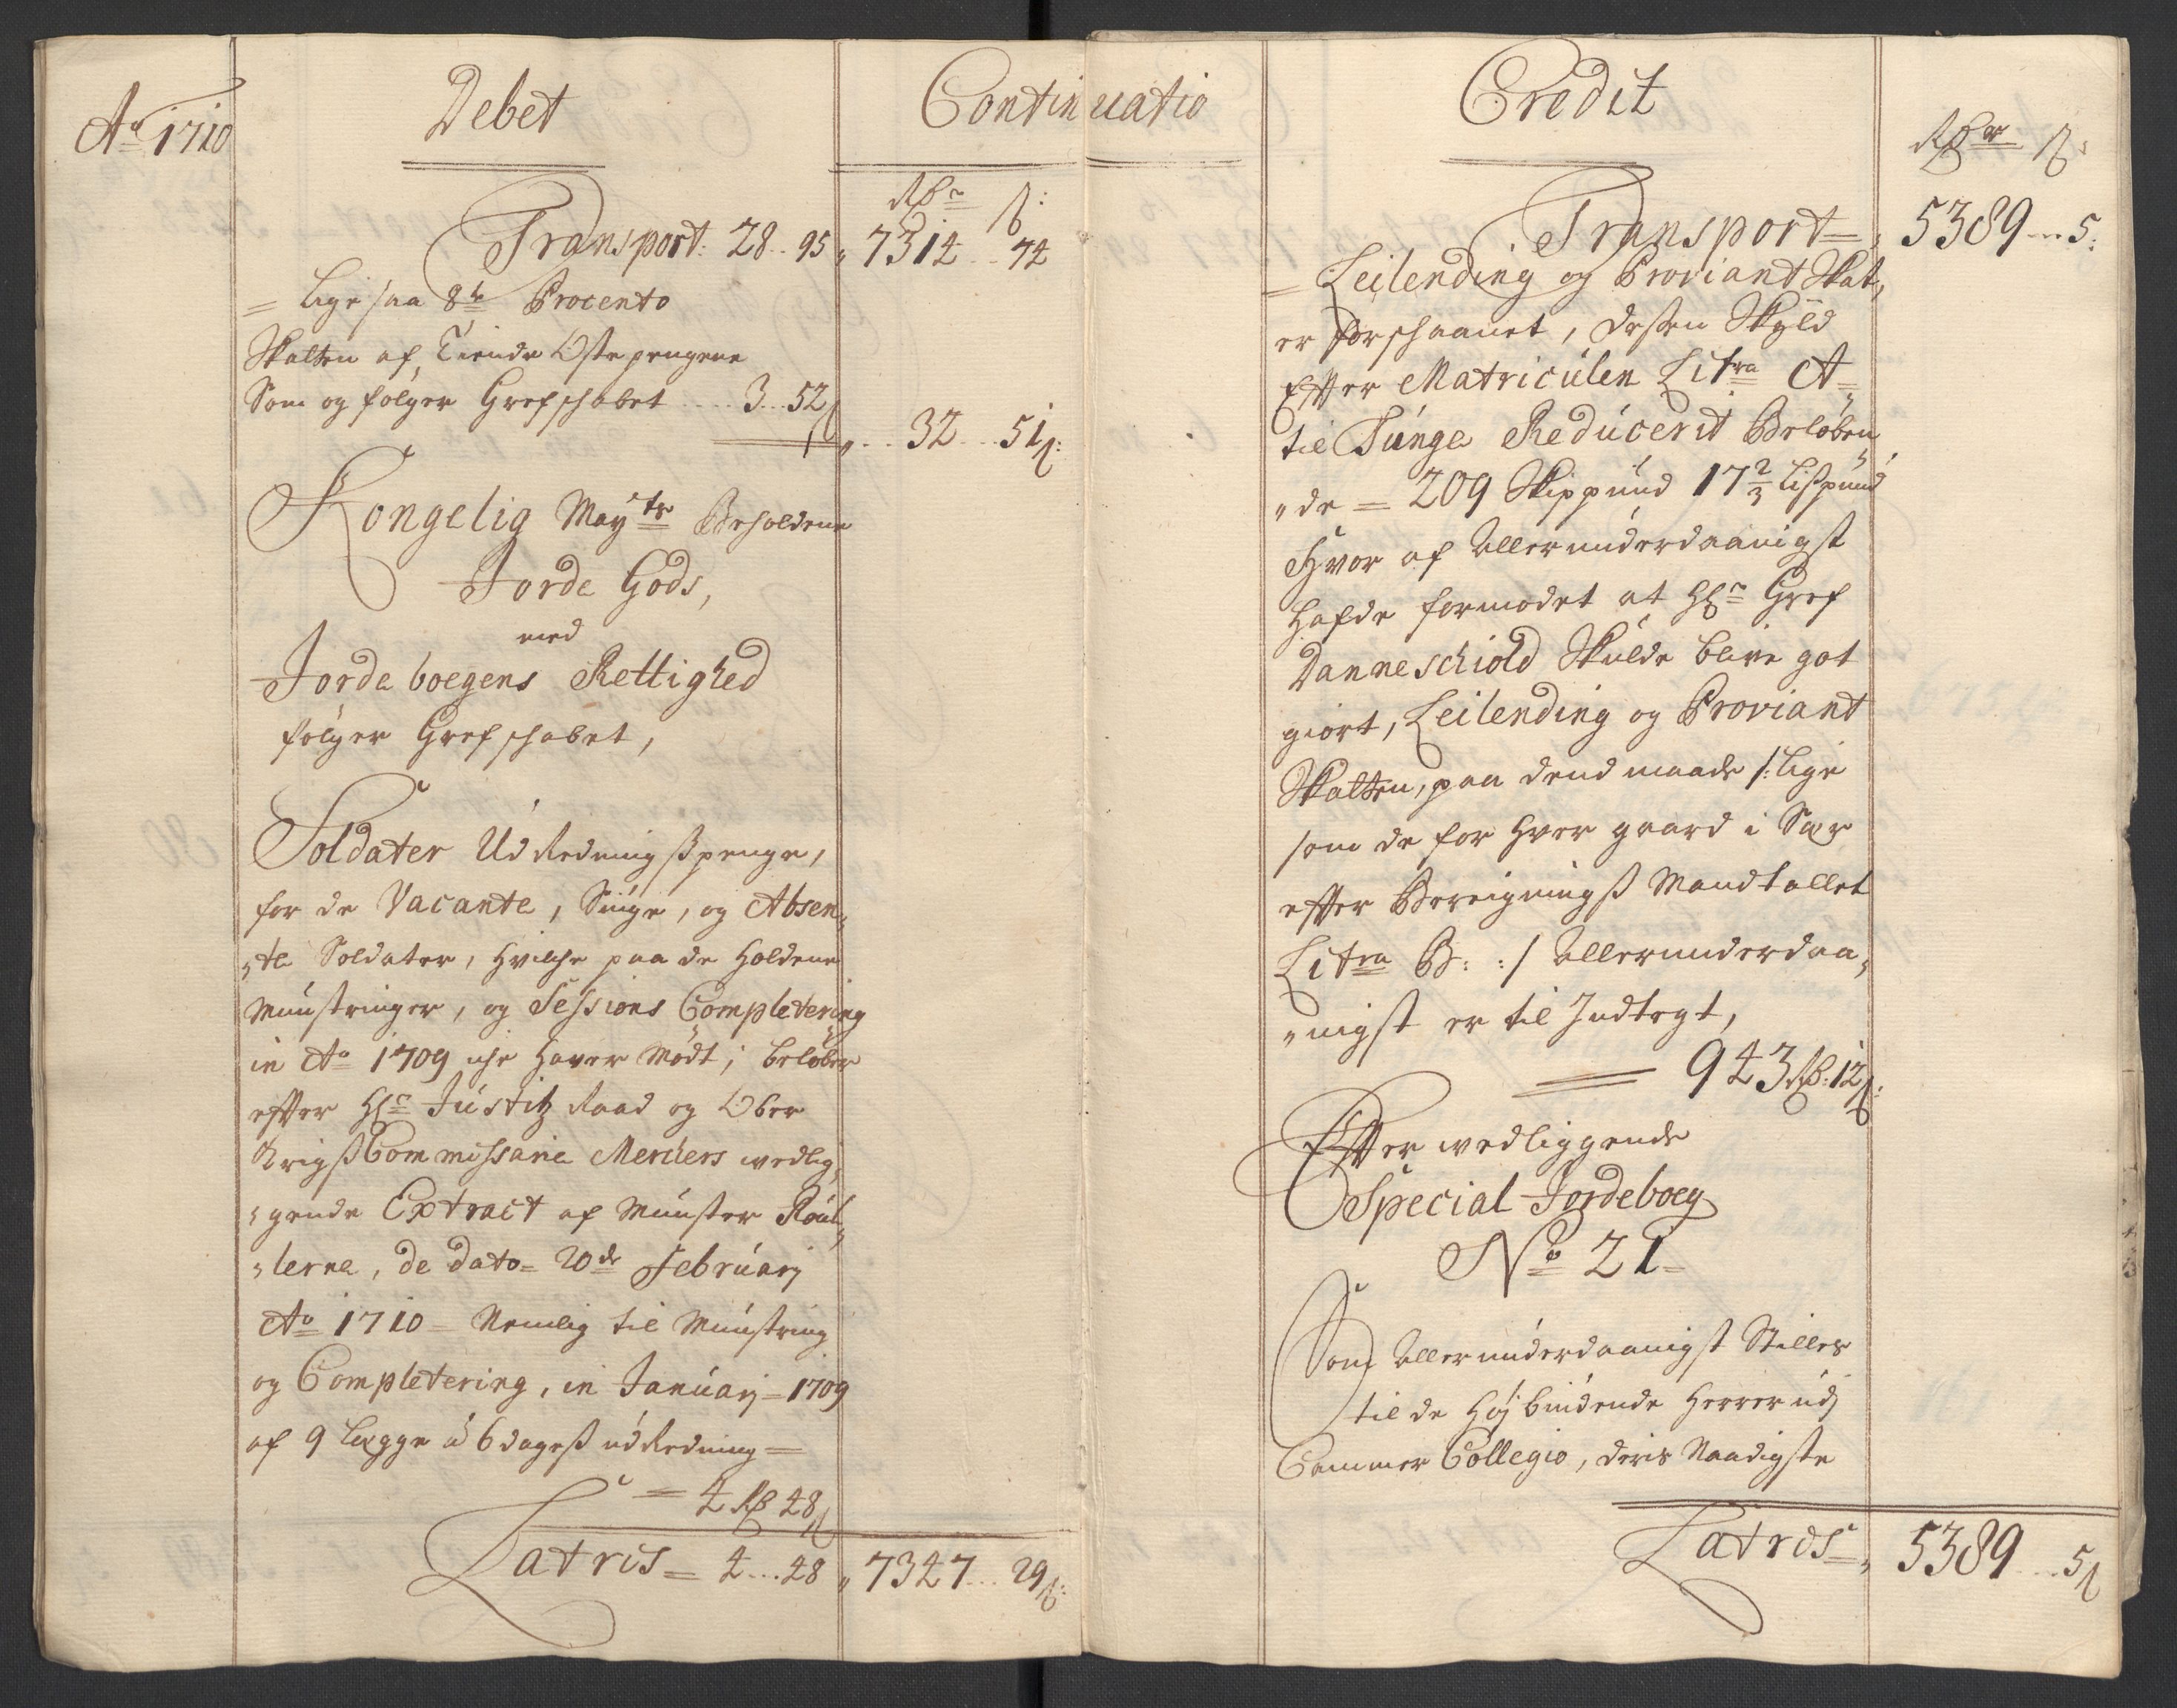 Ao 1710
Debet
Continuatio
Rdr ß:
Transport: 28 .. 95 " 7314 .. 74
= Lige saa 8te Procento
Skatten af Tiende Ostepengene
Som og følger Grefschabet .... 3 .. 52 ß
" .. 32 .. 51 ß:
Kongelig Mayts Beholdene
Jorde Gods,
med
Jordeboegens Rettighed
følger Grefschabet,
Soldater Udredningsspenge,
for de Vacante, Siuge, og Absen„
„te Soldater, hvilche paa de holdene
Münstringer, og Sessions Completering
in Ao 1709 iche haver mødt, beløber
effter Hr Justitz Raad og Ober
KrigsCommissarie Merckers vedlig„
„gende Extract af Münster Roul„
„lerne, de dato = 20de Februarij
Ao 1710 = Nemlig til Münstring
og Completering, in Januarij = 1709
af 9 Lægge á 6 dages udredning =
= 4 Rd 48 ß
Latris = 4 ... 48 " 7347 ... 29 ß:
Credit
Rdr ß:
Transport = " 5389 ... 5:
= Leilending og Proviant Skat„
er forschaanet, dessen Skyld
Effter Matriculen Litra A =
til Tunge Reducerit Beløben„
„de = 209 Skippund 17 2/3 Lispund
Hvor af allerunderdaanigst
hafde formodet at Hr Gref
Danneschiold Skulde blive got
giort, Leilending og Proviant
Skatten, paa dend maade /: lige
som de for hver gaard i Sær
effter Bereignings Mandtallet
Litra B: :/ allerunderdaa„
„nigst er til Indtegt,
= 943 Rd: 12 ß:
Effter vedliggende
Special Jordeboeg
No 21 =
Som allerunderdaanigst Stilles
til de Høybiudende Herrer udj
Cammer Collegio, deris Naadigste
Latris = " 5389 ... 5 ß